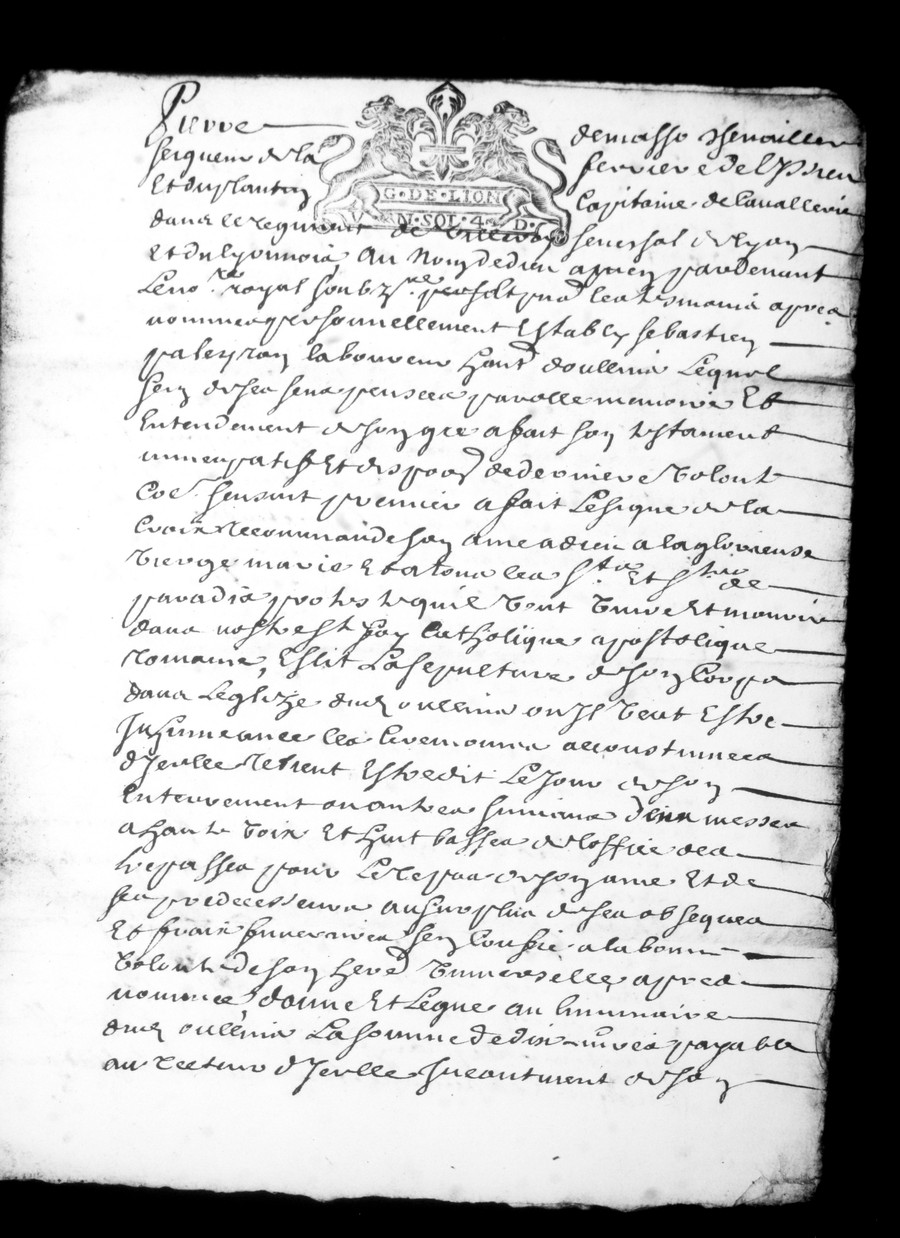 Pierre demasso Chevaillier
seigneur de la ferriere de
Et du plantin Capitaine de Cavallerie
G · DE · LION
V N · SOL · 4 D ·
dans le regiment de seneshal de lyon
Et du lyonnois Au Nom de dieu amen pardevant
Le no.re royal soubz.né les tesmoins apres
nommes personnellement Estably sebastien
laboureur doullins Lequel
sain de ses sens pensees parolle memoire Et
Entendement de son gre a fait son testament
nuncupatif Et dispoon de derniere volont
Co.e sensuit premier a fait Le signe de la
Croix recommandé son ame a dieu a la glorieuse
vierge marie Et a tous les S.ts Et S.tes de
paradis qu'il veut vivre Et mourir
dans nostre s.te foy Catholique apostolique
romaine, Eslit La sepulture de son Corps
dans Leglize dud oullins ou Il veut Estre
Inhumé avec les Ceremonies accoustumees
d'Icelle veut Estre dit Le Jour de son
Enterrement messes
a haute voix Et huit basses de l'office des
trepasses pour Le repos de son ame Et de
ses predecesseurs au surplus de ses obseques
Et fraix funeraires sen Confie a la bonne
volonté de son hered universelle apres
nommee donne Et Legue au luminaire
dud oullins La somme de dix livres payable
au recteur d'Icelle Incontinent de son